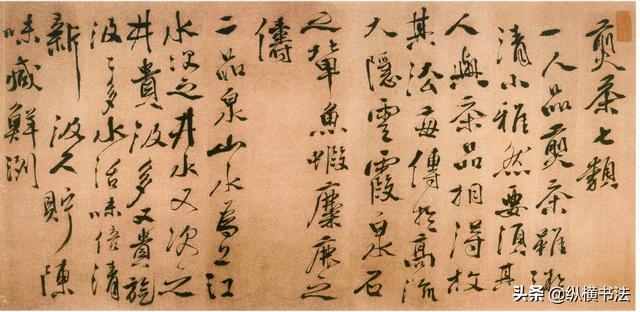 煎茶七類
一人品煎茶雖微
清小雅然要須其
人與茶品相得故
其法每傳於高流
大隱雲霞泉石
之輩魚蝦麋鹿之
儔
二品泉山水為上江
水次之井水又次之
井貴汲多又貴旋
汲〻多水活味倍清
新汲久貯陳
味減鮮冽
头条 @纵横书法